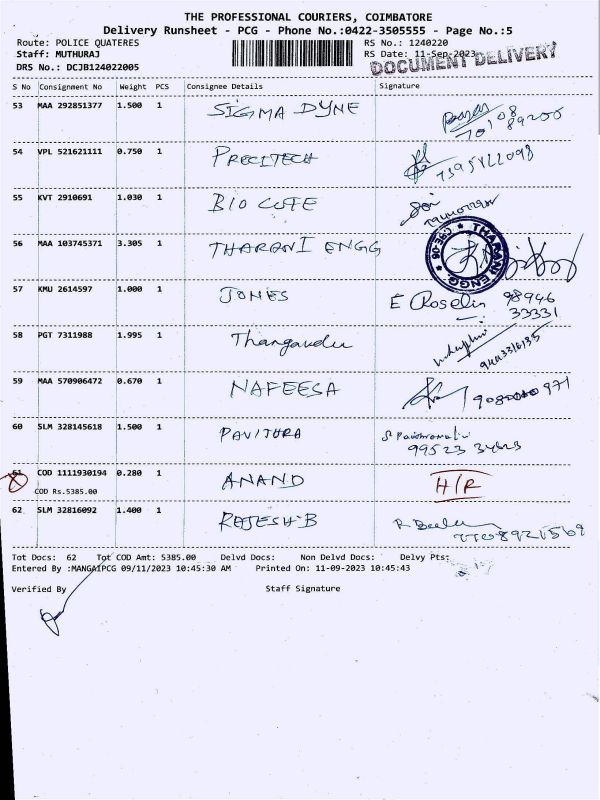 THE PROFESSIONAL COURIERS, COIMBATORE
Delivery Runsheet - PCG - Phone No.:0422-3505555 - Page No.:5
Route: POLICE QUATERES RS No.: 1240220
Staff: MUTHURAJ RS Date: 11-Sep-2023
DRS No.: DCJB124022005 DOCUMENT DELIVERY
S No Consignment No Weight PCS Consignee Details Signature
53 MAA 292851377 1.500 1 SIGMA DYNE
89200
54 VPL 521621111 0.750 1 PRECITECH
55 KVT 2910691 1.030 1 BIO CUTE
56 MAA 103745371 3.305 1 THARANI ENGG THARANI ENGG. * CBE-06 *
57 KMU 2614597 1.000 1 JONES E Roselin 98946
33331
58 PGT 7311988 1.995 1 Thangavelu
9443316135
59 MAA 570906472 0.670 1 NAFEESA
60 SLM 328145618 1.500 1 PAVITHRA
99523
61 COD 1111930194 0.280 1 ANAND H/R
COD Rs.5385.00
62 SLM 32816092 1.400 1 RAJESH.B
Tot Docs: 62 Tot COD Amt: 5385.00 Delvd Docs: Non Delvd Docs: Delvy Pts:
Entered By :MANGAIPCG 09/11/2023 10:45:30 AM Printed On: 11-09-2023 10:45:43
Verified By Staff Signature